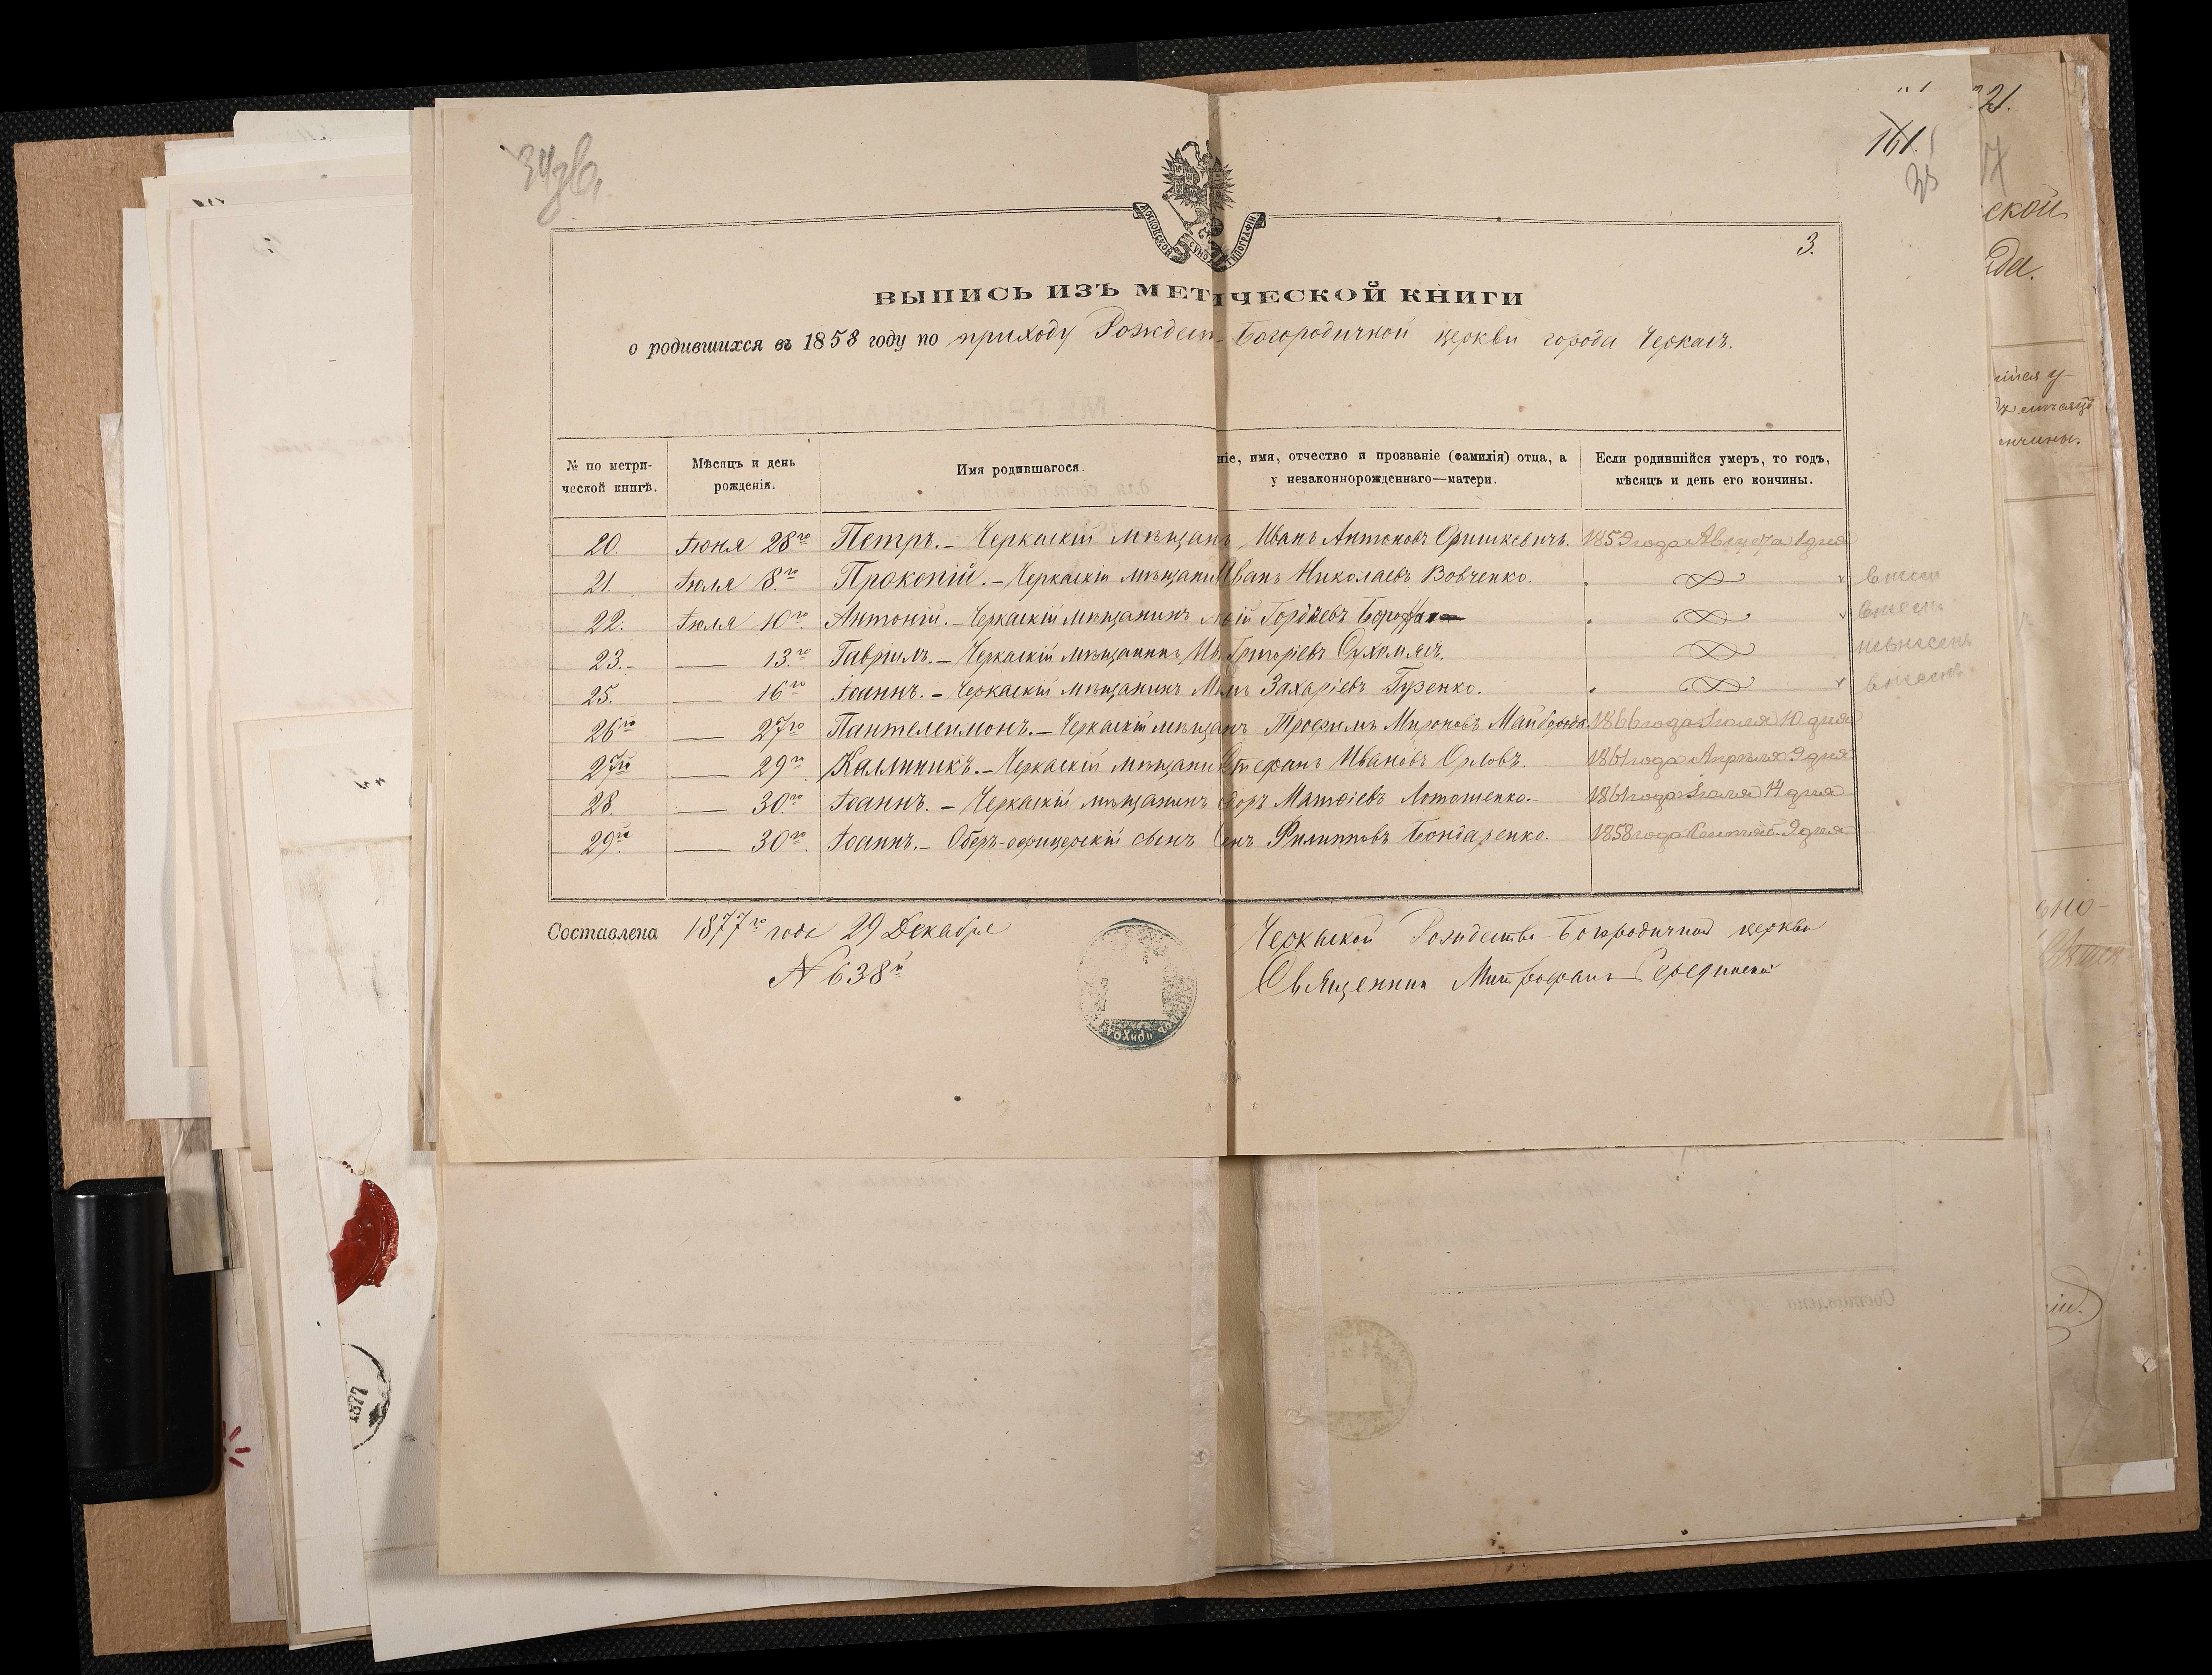 21.
161.
35
МОСКОВСКОЙ СѴНОД ТИПОГРАФІИ.
3.
ВЫПИСЬ ИЗЪ МЕТ ИЧЕСКОЙ КНИГИ
о родившихся въ 1858 году по приходу Рождест Богородичной церкви города Черкасъ.
№ по метрической книгѣ. Мѣсяцъ и день рожденія. Имя родившагося. ніе, имя, отчество и прозваніе (фамилія) отца, а у незаконнорожденнаго—матери. Если родившійся умеръ, то годъ, мѣсяцъ и день его кончины.
20. Іюня 28го Петръ.- Черкаскій мѣщан Иванъ Антоновъ Оришкевичъ. 1859 года Августа 1 дня
21. Іюля 8.го Прокопій.- Черкаскій мѣщани Иванъ Николаевъ Вовченко. внесен
22. Іюля 10го Антоній.- Черкаскій мѣщанинъ Гордѣевъ внесен
23.- —— 13.го Гавріилъ.- Черкаскій мѣщанинъ Григоріевъ Сухомлинъ. невнесенъ
25. —— 16го Іоаннъ.- Черкаскій мѣщанинъ Захаріевъ Гузенко. внесенъ
26го —— 27го Пантелеимонъ.- Черкаскій мѣщан Трофимъ Мироновъ Майборода 1866 года Іюля 10 дня
27го —— 29го Каллиникъ.- Черкаскій мѣщани Стефанъ Ивановъ Орловъ. 1861 года Апрѣля 9 дня
28. —— 30.го Іоаннъ.- Черкаскій мѣщанинъ Матѳіевъ Лотошенко.- 1861 года Іюля 14 дня
29го —— 30го Іоаннъ.- Оберъ-офицерскій сынъ Филипповъ Бондаренко. 1858 года Сентяб. 9 дня
Составлена 1877го года 29 Декабря Черкаской Рождество-Богородичной церкви
№ 638й Священник Митрофанъ
ПРИХОД
1877